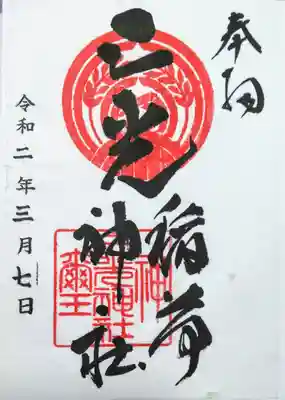 奉拝
三光稲荷神社
令和二年三月七日